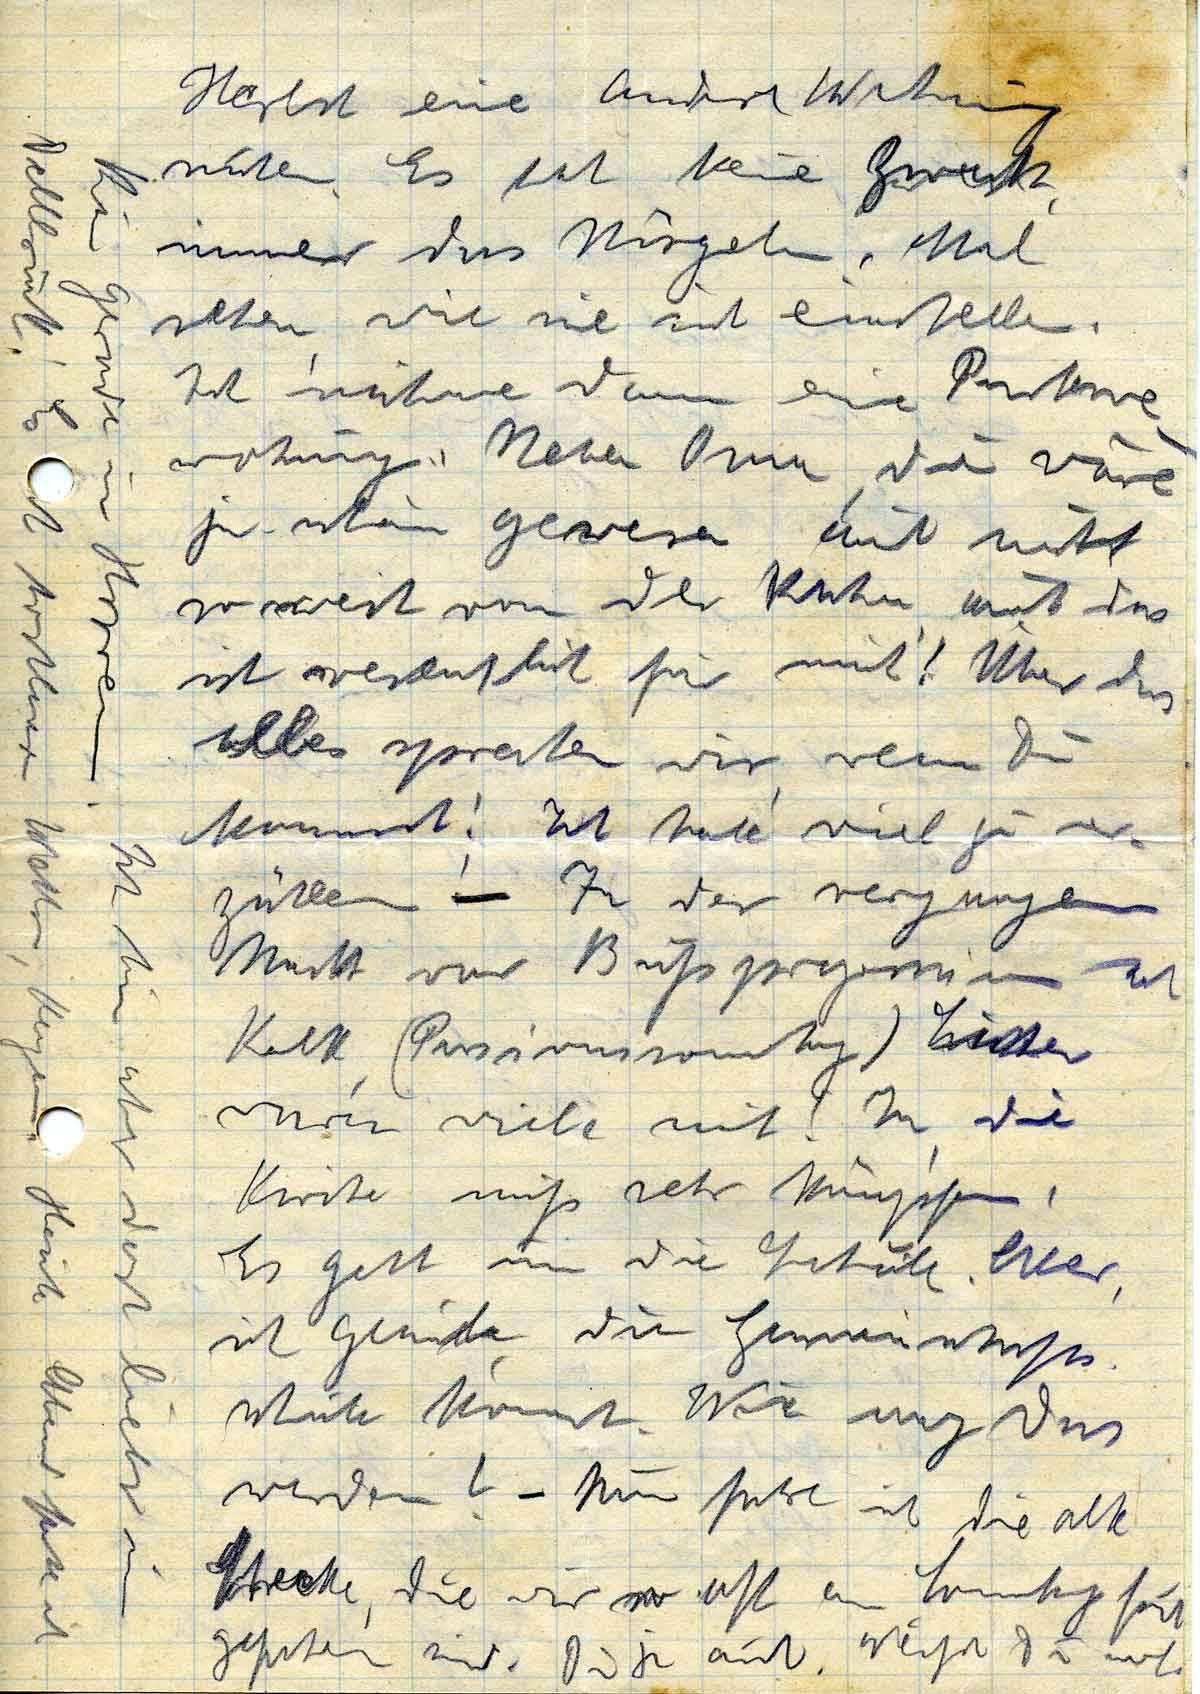 Herbst eine andere Wohnung
suchen. Es hat keine Zweck,
immer das Nörgeln. Mal
sehen, wie sie sich einstellen.
Ich nähme dann eine Parterre
wohnung. Neben Oma, die wäre
ja schön gewesen auch nicht
so weit von der Bahn, und das
ist wesentlich für mich! Über das
alles sprechen wir, wenn Du
kommst! Ich habe viel zu er-
zählen! – In der vergangenen
Nacht war Bußprozession nach
Kalk, (Passionssonntag) Leider
waren viele mit! Ja, die
Kirche muß sehr kämpfen.
Es geht um die Schule. Aber,
ich glaube, die Gemeinschafts-
schule kommt. Wie mag das
werden! – Nun fahre ich die alte
Strecke, die wir so oft am Sonntag
gefahren sind. Du ja auch. Weißt Du noch
Kein Gelände in Horrem. Ich bin aber dort lieber in
Dellbrück! Es ist herrliches Wetter, Morgen. Heute Abend fahre ich